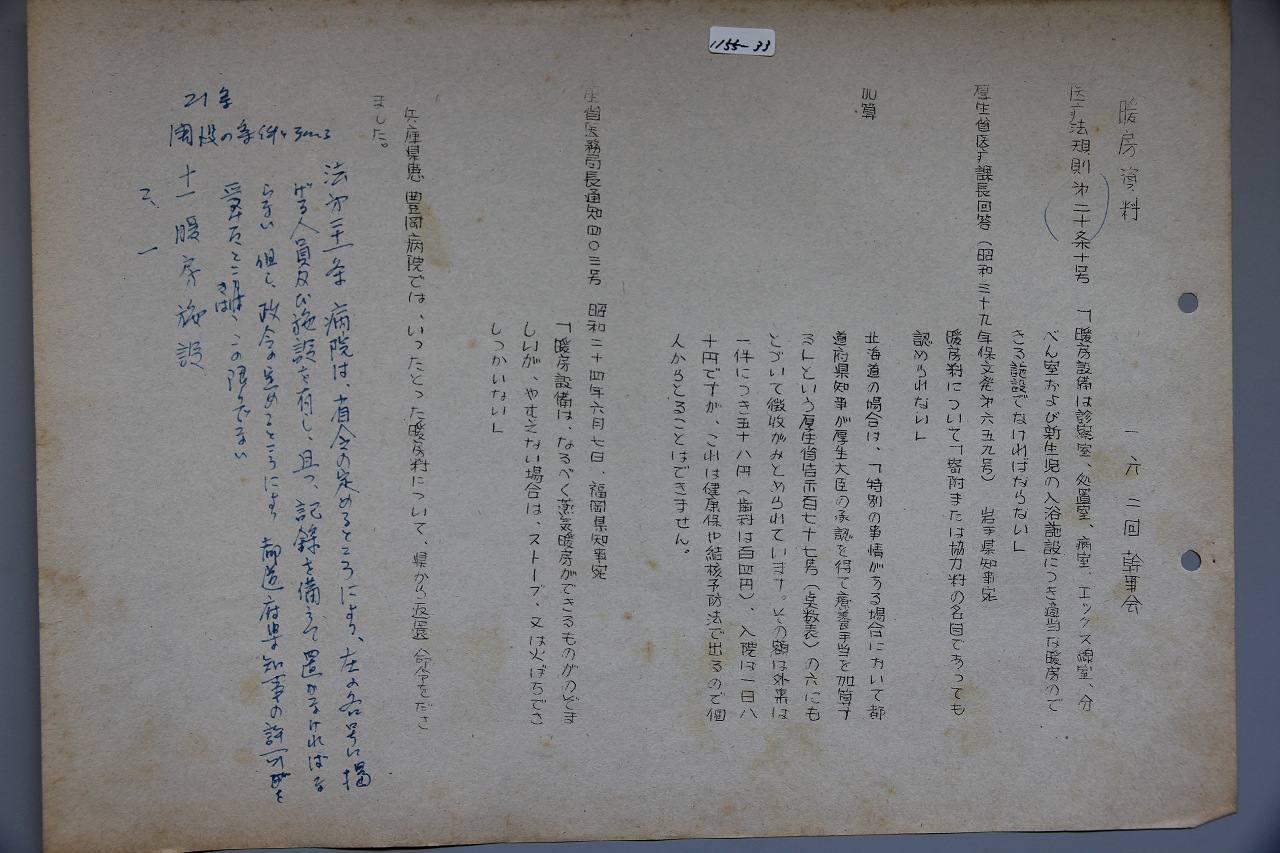 1155-33
暖房資料　一六二回幹事会
医療法規則第二十条十号　「暖房設備は診察室、処置室、病室、エックス線室、分
べん室および新生児の入浴施設につき適当な暖房ので
きる施設でなければならない」
厚生省医療課長回答（昭和三十九年保文発第六五九号）　岩手県知事宛
暖房料について「寄附または協力料の名目であっても
認められない」
加算
北海道の場合は、「特別の事情がある場合において都
道府県知事が厚生大臣の承認を得て療養手当を加算す
る」という厚生省告示百七十七号（点数表）の六にも
とづいて徴収がみとめられています。その額は外来は
一件につき五十八円（歯科は百四円）、入院は一日八
十円ですが、これは健康保や結核予防法で出るので個
人からとることはできません。
生省医務局長通知四〇三号　昭和二十四年六月七日、福岡県知事宛
「暖房設備は、なるべく蒸気暖房ができるものがのぞま
しいが、やむえない場合は、ストーブ、又は火ばちでさ
しつかいない」
兵庫県恵 豊岡病院では、いったとった暖房料について、県から返還 命令をださ
ました。
21条
開設の条件
法第二十一条 病院は、省令の定めるところにより、左の各号に掲
げる人員及び施設を有し、且つ、記録を備えて置かなければな
らない 但し、政令の定めるところにより 都道府県知事の許可を
受けたときは、この限りでない
十一 暖房施設